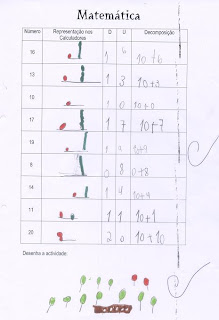 Matemática
Número Representação nos Calculadores D U Decomposição
16 1 6 10+6
13 1 3 10+3
10 1 0 10+0
17 1 7 10+7
19 1 9 10+9
8 0 8 0+8
14 1 4 10+4
11 1 1 10+1
20 2 0 10+10
Desenha a actividade: